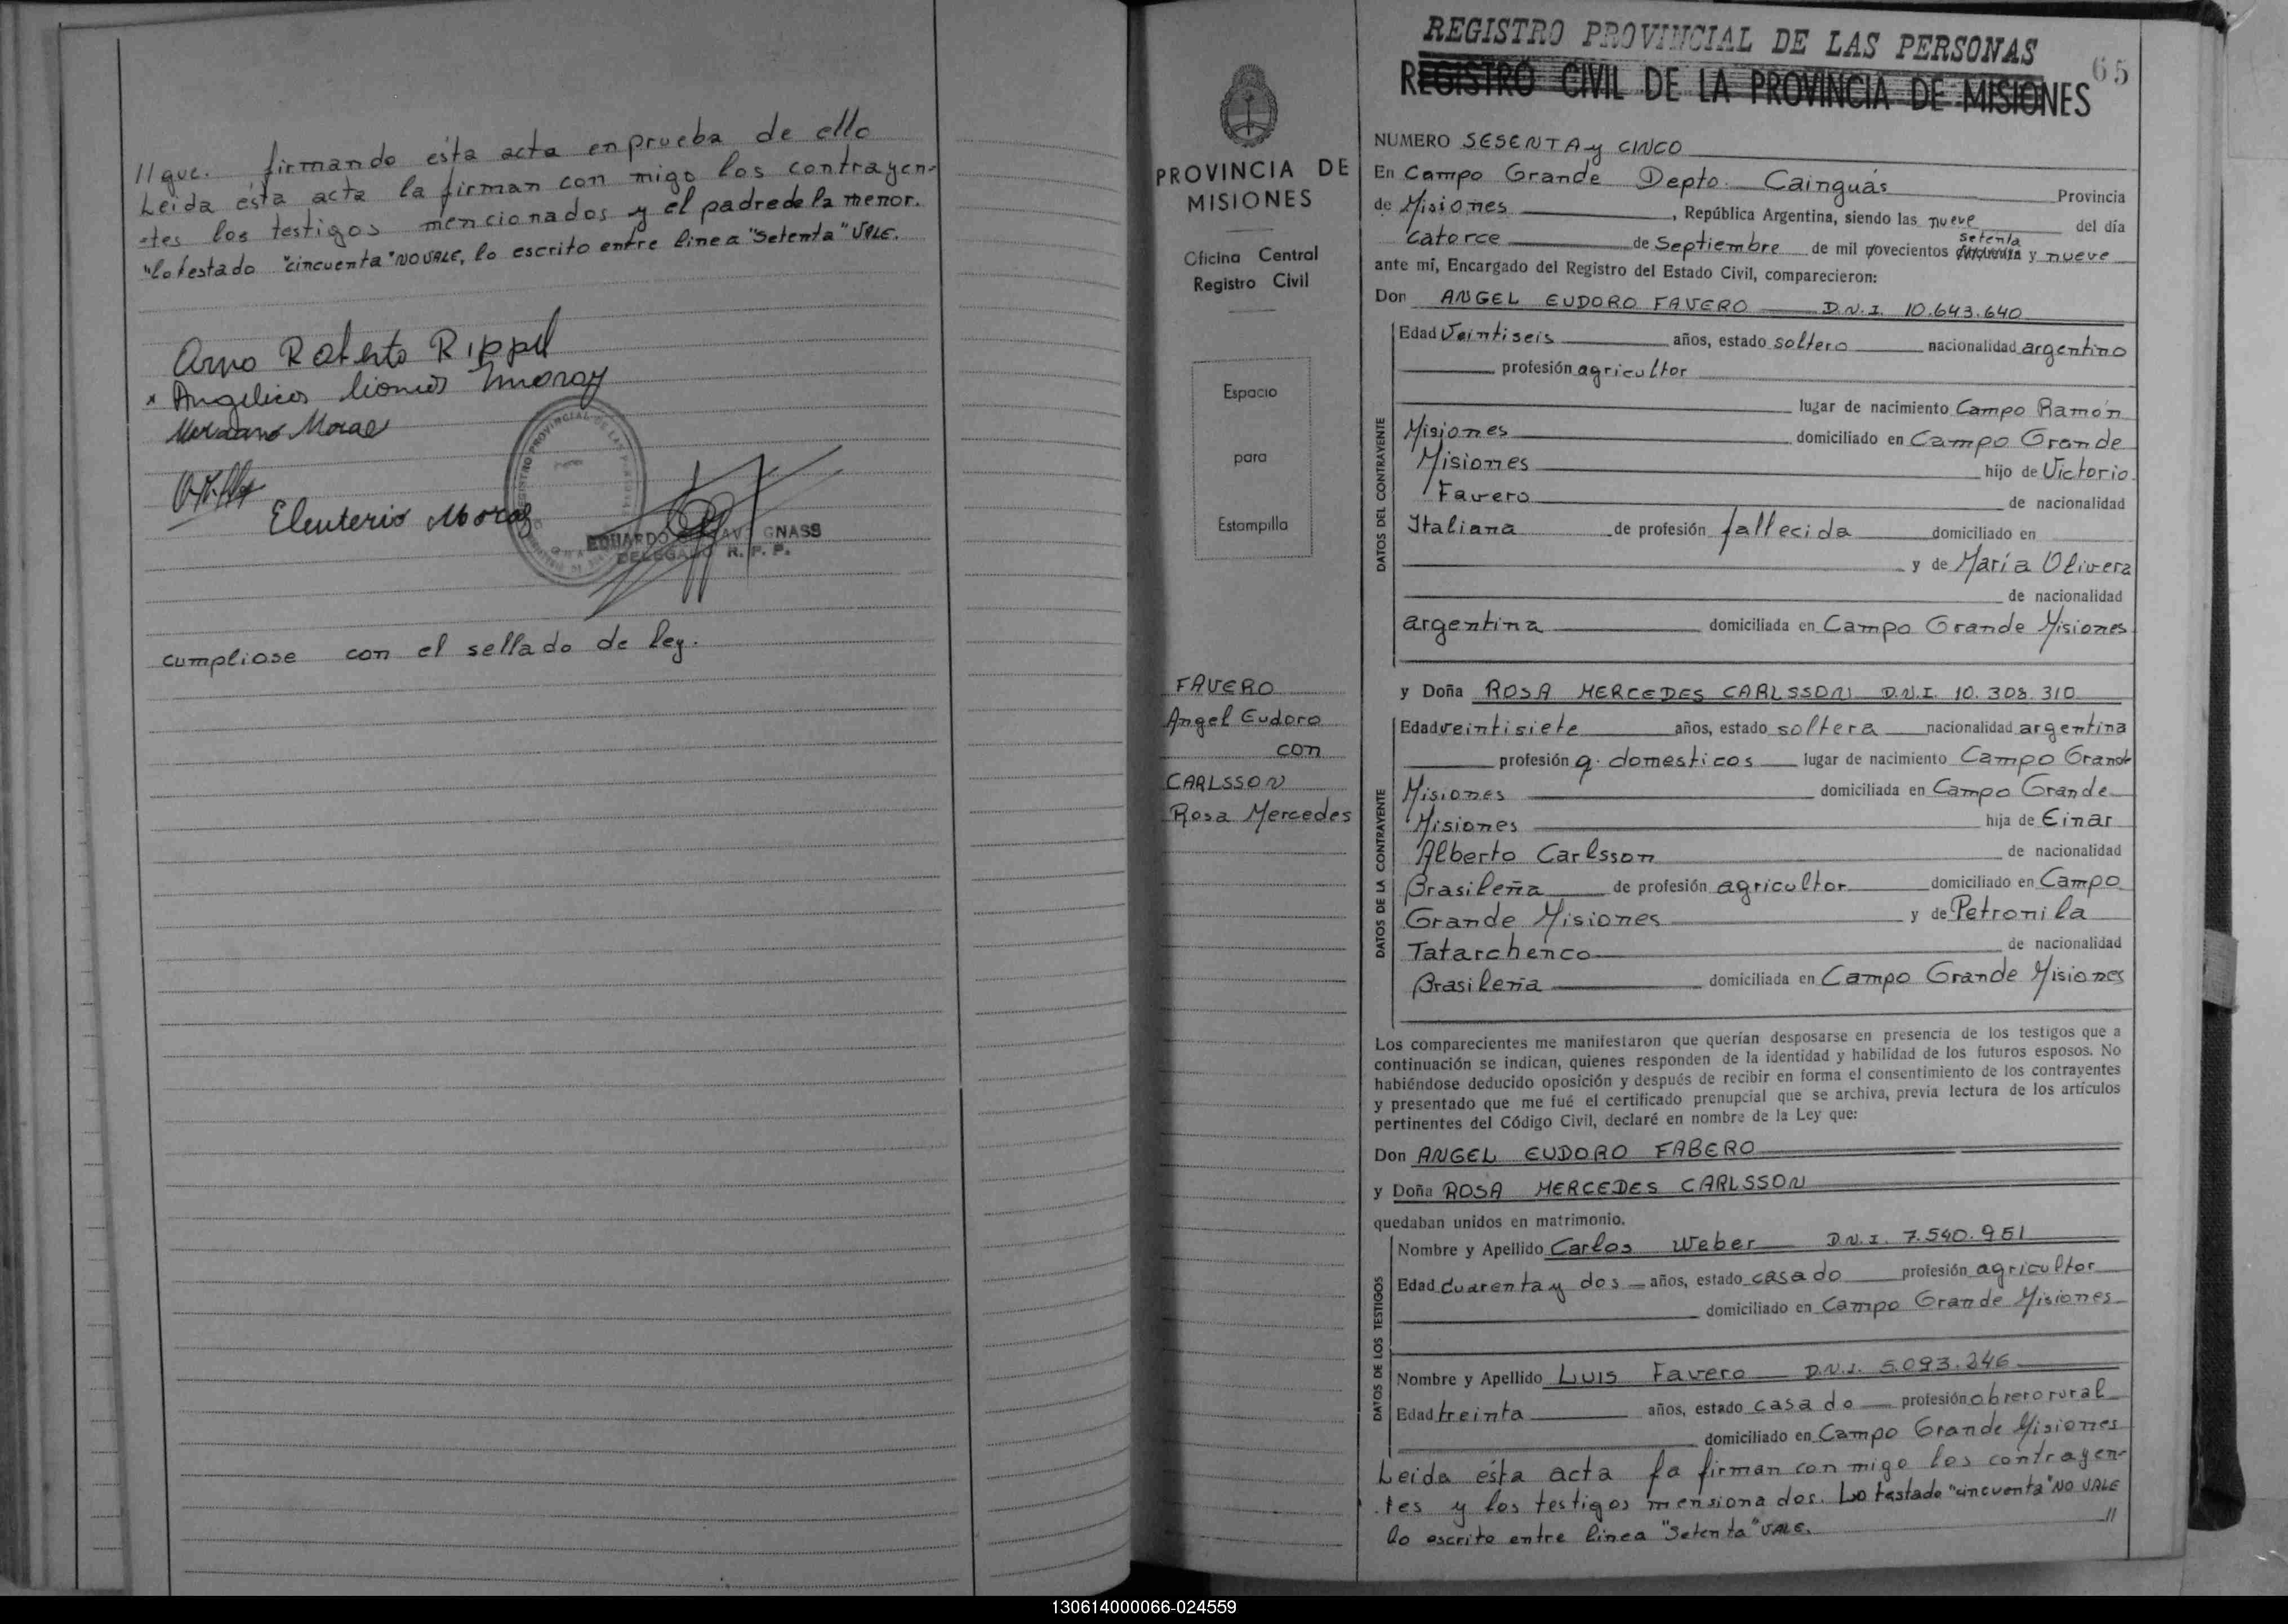 //que. firmando ésta acta en prueba de ello
Leida ésta acta la firman con migo los contrayen-
-tes los testigos mencionados y el padre de la menor.
"lo testado "cincuenta" NO VALE, lo escrito entre linea "Setenta" VALE.
Arno Roberto Rippel
Eleuterio Moraes
EDUARDO GNASS
DELEGADO R. P. P.
cumpliose con el sellado de ley.
PROVINCIA DE
MISIONES
Oficina Central
Registro Civil
Espacio
para
Estampilla
FAVERO
Angel Eudoro
con
CARLSSON
Rosa Mercedes
REGISTRO PROVINCIAL DE LAS PERSONAS
REGISTRO CIVIL DE LA PROVINCIA DE MISIONES
65
NUMERO SESENTA y CINCO
En Campo Grande Depto. Cainguás Provincia
de Misiones, República Argentina, siendo las nueve del día
catorce de Septiembre de mil novecientos cincuenta setenta y nueve
ante mí, Encargado del Registro del Estado Civil, comparecieron:
Don ANGEL EUDORO FAVERO D.N.I. 10.643.640
DATOS DEL CONTRAYENTE
Edad Veintiseis años, estado soltero nacionalidad argentino
profesión agricultor
lugar de nacimiento Campo Ramón
Misiones domiciliado en Campo Grande
Misiones hijo de Victorio
Favero de nacionalidad
Italiana de profesión fallecida domiciliado en
y de María Olivera
de nacionalidad
argentina domiciliada en Campo Grande Misiones
y Doña ROSA MERCEDES CARLSSON D.N.I. 10.308.310
DATOS DE LA CONTRAYENTE
Edad veintisiete años, estado soltera nacionalidad argentina
profesión q. domesticos lugar de nacimiento Campo Grande
Misiones domiciliada en Campo Grande
Misiones hija de Einar
Alberto Carlsson de nacionalidad
Brasileña de profesión agricultor domiciliado en Campo
Grande Misiones y de Petronila
Tatarchenco de nacionalidad
Brasileña domiciliada en Campo Grande Misiones
Los comparecientes me manifestaron que querían desposarse en presencia de los testigos que a
continuación se indican, quienes responden de la identidad y habilidad de los futuros esposos. No
habiéndose deducido oposición y después de recibir en forma el consentimiento de los contrayentes
y presentado que me fué el certificado prenupcial que se archiva, previa lectura de los artículos
pertinentes del Código Civil, declaré en nombre de la Ley que:
Don ANGEL EUDORO FABERO
y Doña ROSA MERCEDES CARLSSON
quedaban unidos en matrimonio.
DATOS DE LOS TESTIGOS
Nombre y Apellido Carlos Weber D.N.I. 7.540.951
Edad cuarenta y dos años, estado casado profesión agricultor
domiciliado en Campo Grande Misiones
Nombre y Apellido LUIS Favero D.N.I. 5.093.246
Edad treinta años, estado casado profesión obrero rural
domiciliado en Campo Grande Misiones
Leida ésta acta la firman con migo los contrayen-
.tes y los testigos mensionados. Lo testado "cincuenta" NO VALE
lo escrito entre linea "Setenta" VALE. //
130614000066-024559